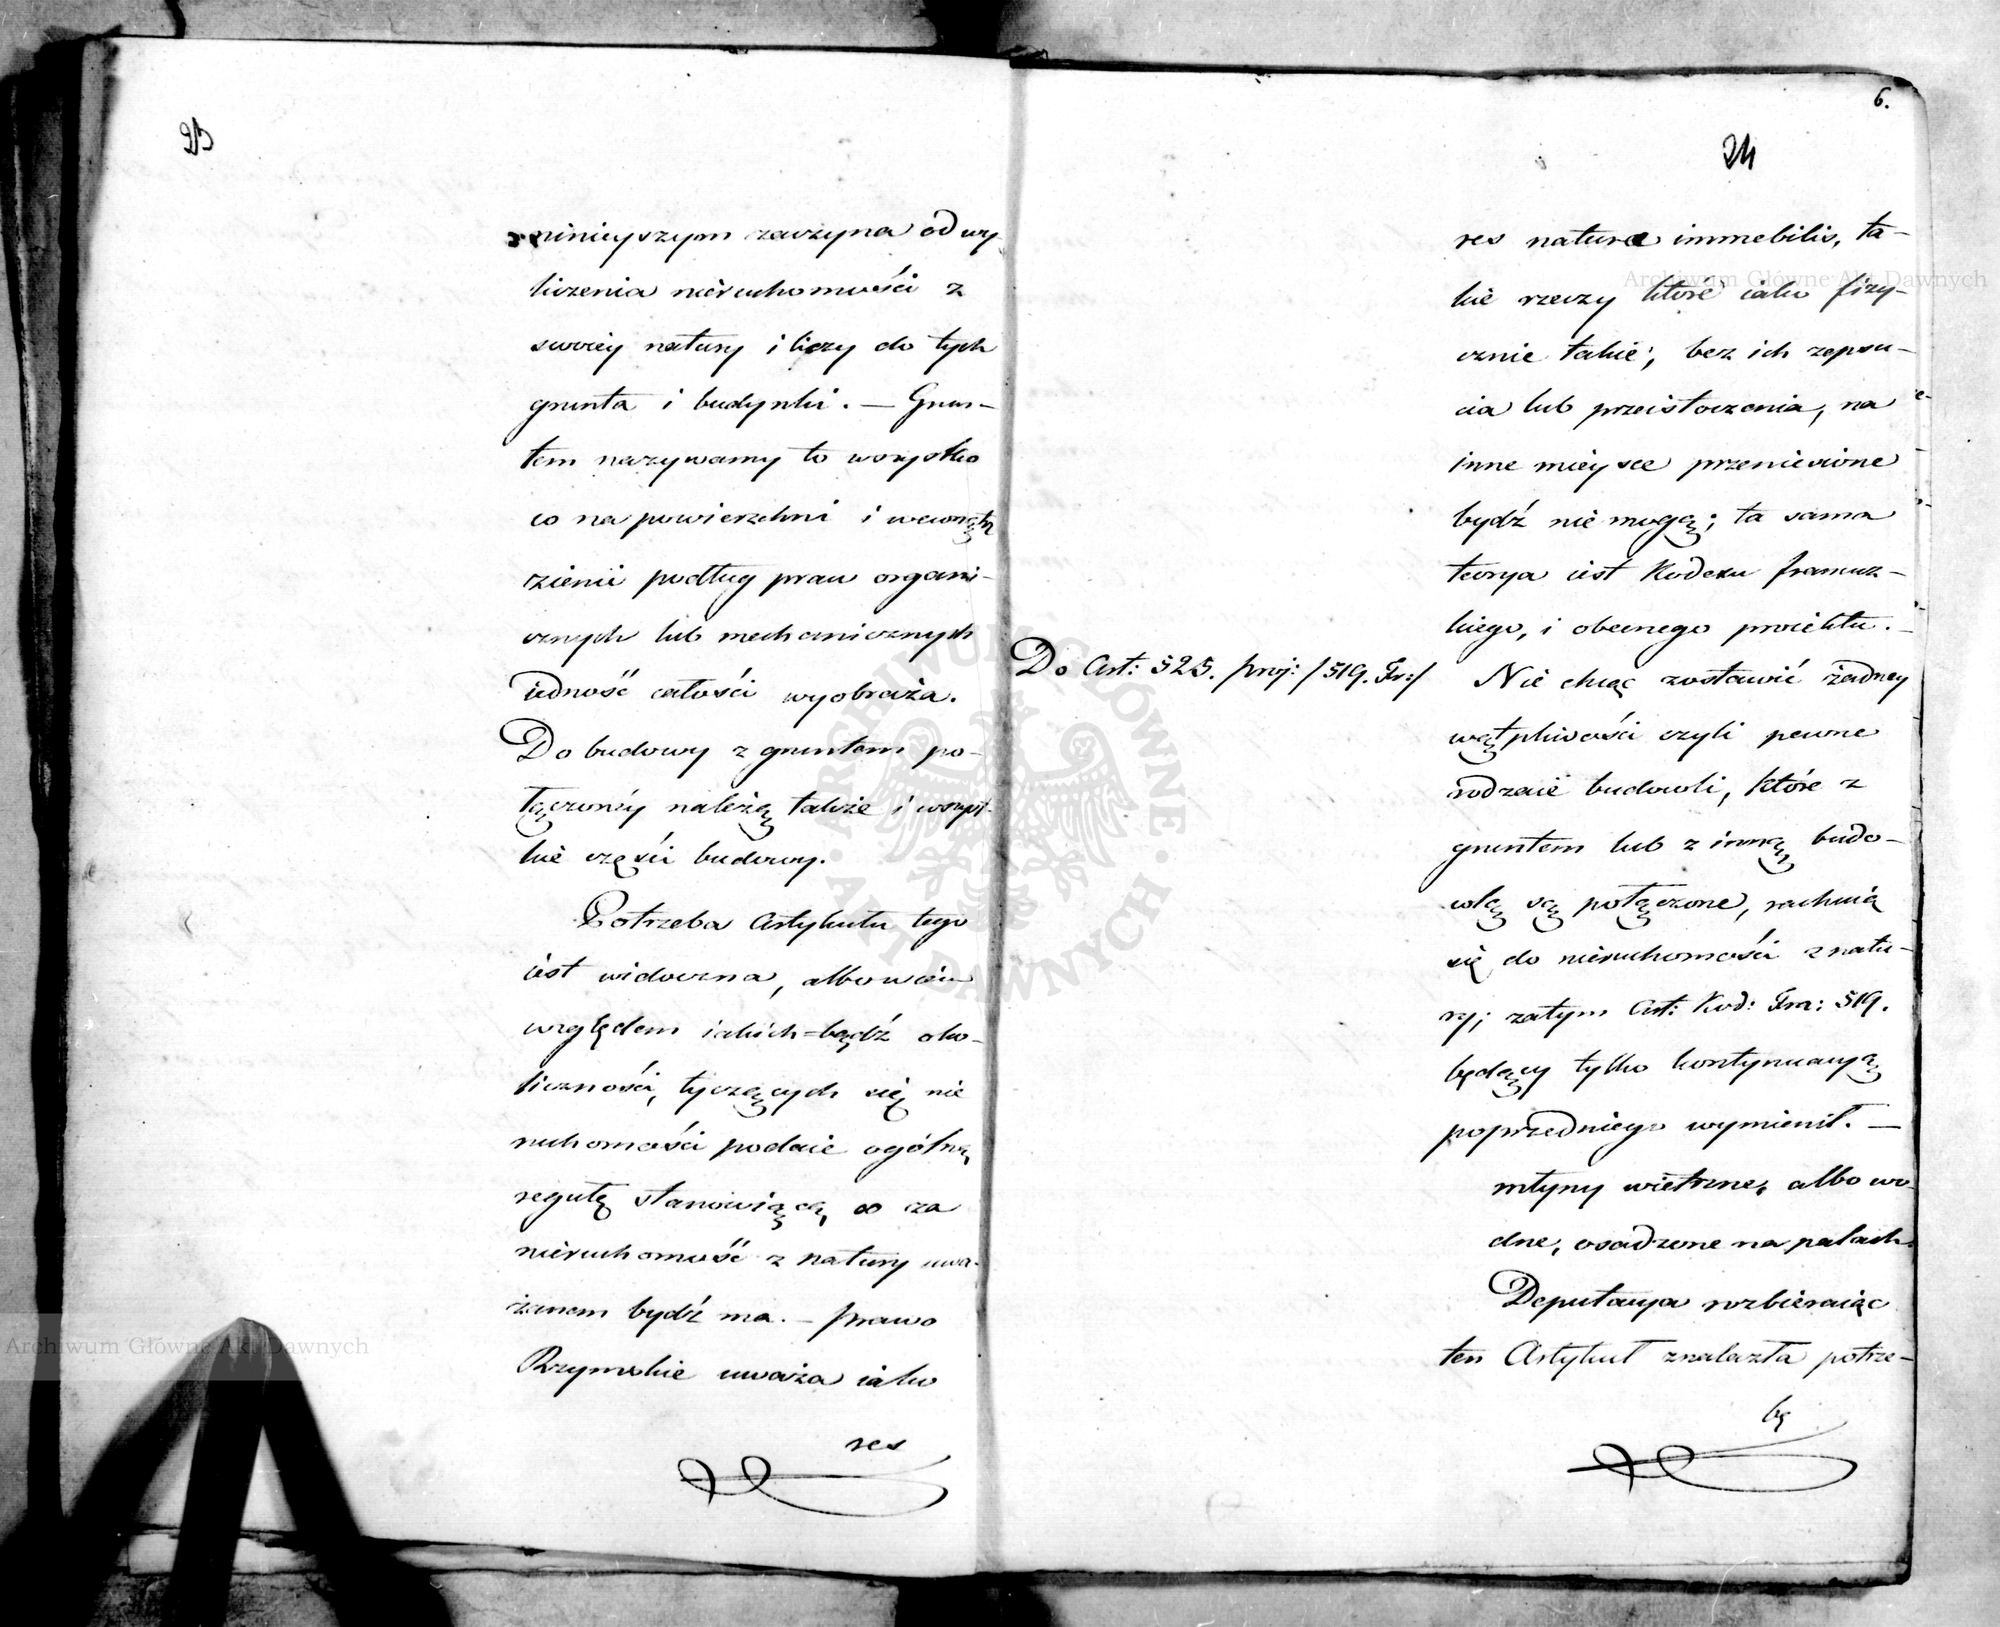 niniejszym zaczyna od wy-
liczenia nieruchomości z
swoiey natury i liczy do tych
grunta i budynki. — Grun-
tem nazywamy to wszystko
co na powierzchni i wewnątrz
ziemi podług praw organi-
cznych lub mechanicznych
iedność całości wyobraża.
Do budowy z gruntem po-
łączonéy należą także i wszyst-
kie części budowy.
Potrzeba Artykułu tego
iest widoczna, albowiem
względem iakich=bądź oko-
liczności, tyczących się nie
ruchomości podaie ogólną
regułę stanowiącą, co za
nieruchomość z natury uwa-
żanem bydź ma. — prawo
Rzymskie uważa iako
res
6.
24
res natura immobilis, ta-
kie rzeczy które iako fizy-
cznie takie, bez ich zepsu-
cia lub przeistoczenia, na
inne mieysce przeniesione
bydź nie mogą; ta sama
teorya iest Kodexu francuz-
kiego, i obecnego proiektu. —
Do Art: 525. proj: /519. Fr:/
Nie chcąc zostawić żadney
wątpliwości czyli pewne
rodzaie budowli, które z
gruntem lub z inną budo-
wlą są połączone, rachuią
się do nieruchomości z natu-
ry; zatym Art: Kod: Fra: 519.
będący tylko kontynuacyą
poprzedniego wymienił. —
młyny wietrzne, albo wo-
dne, osadzone na palach.
Deputacya rozbieraiąc
ten Artykuł znalazła potrze-
bę
Archiwum Główne Akt Dawnych
Archiwum Główne Akt Dawnych
ARCHIWUM GŁÓWNE
AKT DAWNYCH